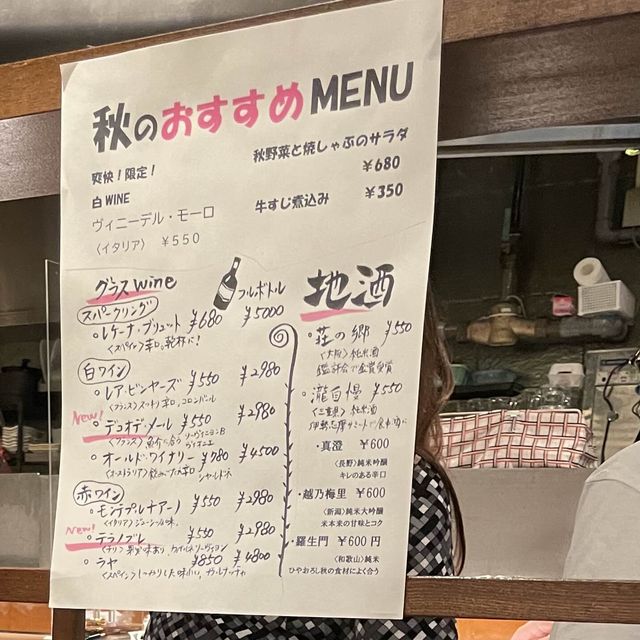 秋のおすすめMENU
爽快!限定!
白WINE
ヴィニーデル・モーロ
〈イタリア〉 ¥550
秋野菜と焼しゃぶのサラダ
¥680
牛すじ煮込み ¥350
グラスwine
フルボトル
スパークリング
・レケーナ・ブリュット ¥680 ¥5000
〈スペイン〉辛口、乾杯に!
白ワイン
・レア・ビンヤーズ ¥550 ¥2980
〈フランス〉スッキリ辛口、コロンバール
New!
・デコオデ・メール ¥550 ¥2980
〈フランス〉魚介に合う ソーヴィニヨンB
ヴィオニエ
・オールドワイナリー ¥780 ¥4500
〈オーストラリア〉飲みごたえ辛口 シャルドネ
赤ワイン
・モンテプルチアーノ ¥550 ¥2980
〈イタリア〉ジューシーな味。
New!
・テラノブレ ¥550 ¥2980
〈チリ〉果実味あり、カベルネソーヴィニヨン
・ラヤ ¥850 ¥4800
〈スペイン〉しっかりした味わい、ガルナッチャ
地酒
・荘の郷 ¥550
〈大阪〉純米酒
鑑評会で金賞受賞
・瀧自慢 ¥550
〈三重県〉純米酒
伊勢志摩サミットで食中酒に
・真澄 ¥600
〈長野〉純米吟醸
キレのある辛口
・越乃梅里 ¥600
〈新潟〉純米大吟醸
米本来の甘味とコク
・羅生門 ¥600円
〈和歌山〉純米
ひやおろし秋の食材によく合う